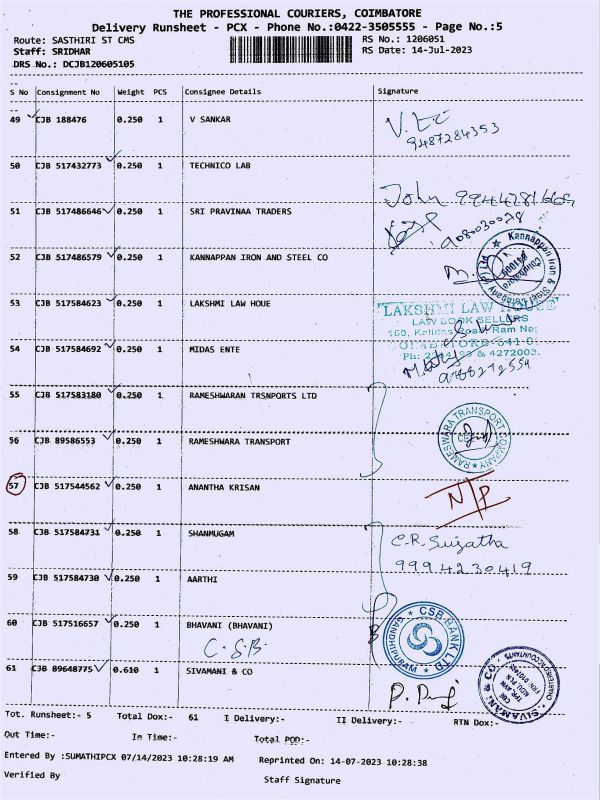 THE PROFESSIONAL COURIERS, COIMBATORE
Delivery Runsheet - PCX - Phone No.:0422-3505555 - Page No.:5
Route: SASTHIRI ST CMS RS No.: 1206051
Staff: SRIDHAR RS Date: 14-Jul-2023
DRS No.: DCJB120605105
S No Consignment No Weight PCS Consignee Details Signature
49 CJB 188476 0.250 1 V SANKAR
9487284353
50 CJB 517432773 0.250 1 TECHNICO LAB
John
51 CJB 517486646 0.250 1 SRI PRAVINAA TRADERS
9080030078
52 CJB 517486579 0.250 1 KANNAPPAN IRON AND STEEL CO
Kannappan Iron & Steel Company (P) Ltd
Coimbatore
53 CJB 517584623 0.250 1 LAKSHMI LAW HOUE
LAKSHMI LAW HOUSE
LAW BOOK SELLERS
54 CJB 517584692 0.250 1 MIDAS ENTE
& 4272003.
55 CJB 517583180 0.250 1 RAMESHWARAN TRSNPORTS LTD
56 CJB 89586553 0.250 1 RAMESHWARA TRANSPORT
RAMESHWARA TRANSPORT COMPANY
57 CJB 517544562 0.250 1 ANANTHA KRISAN
N/P
58 CJB 517584731 0.250 1 SHANMUGAM
C.R. Sujatha
9994230419
59 CJB 517584730 0.250 1 AARTHI
60 CJB 517516657 0.250 1 BHAVANI (BHAVANI)
C.S.B.
CSB BANK LTD
GANDHIPURAM
61 CJB 89648775 0.610 1 SIVAMANI & CO
SIVAMANI & CO.
CHARTERED ACCOUNTANTS
Tot. Runsheet:- 5 Total Dox:- 61 I Delivery:- II Delivery:- RTN Dox:-
Out Time:- In Time:- Total POD:-
Entered By :SUMATHIPCX 07/14/2023 10:28:19 AM Reprinted On: 14-07-2023 10:28:38
Verified By Staff Signature